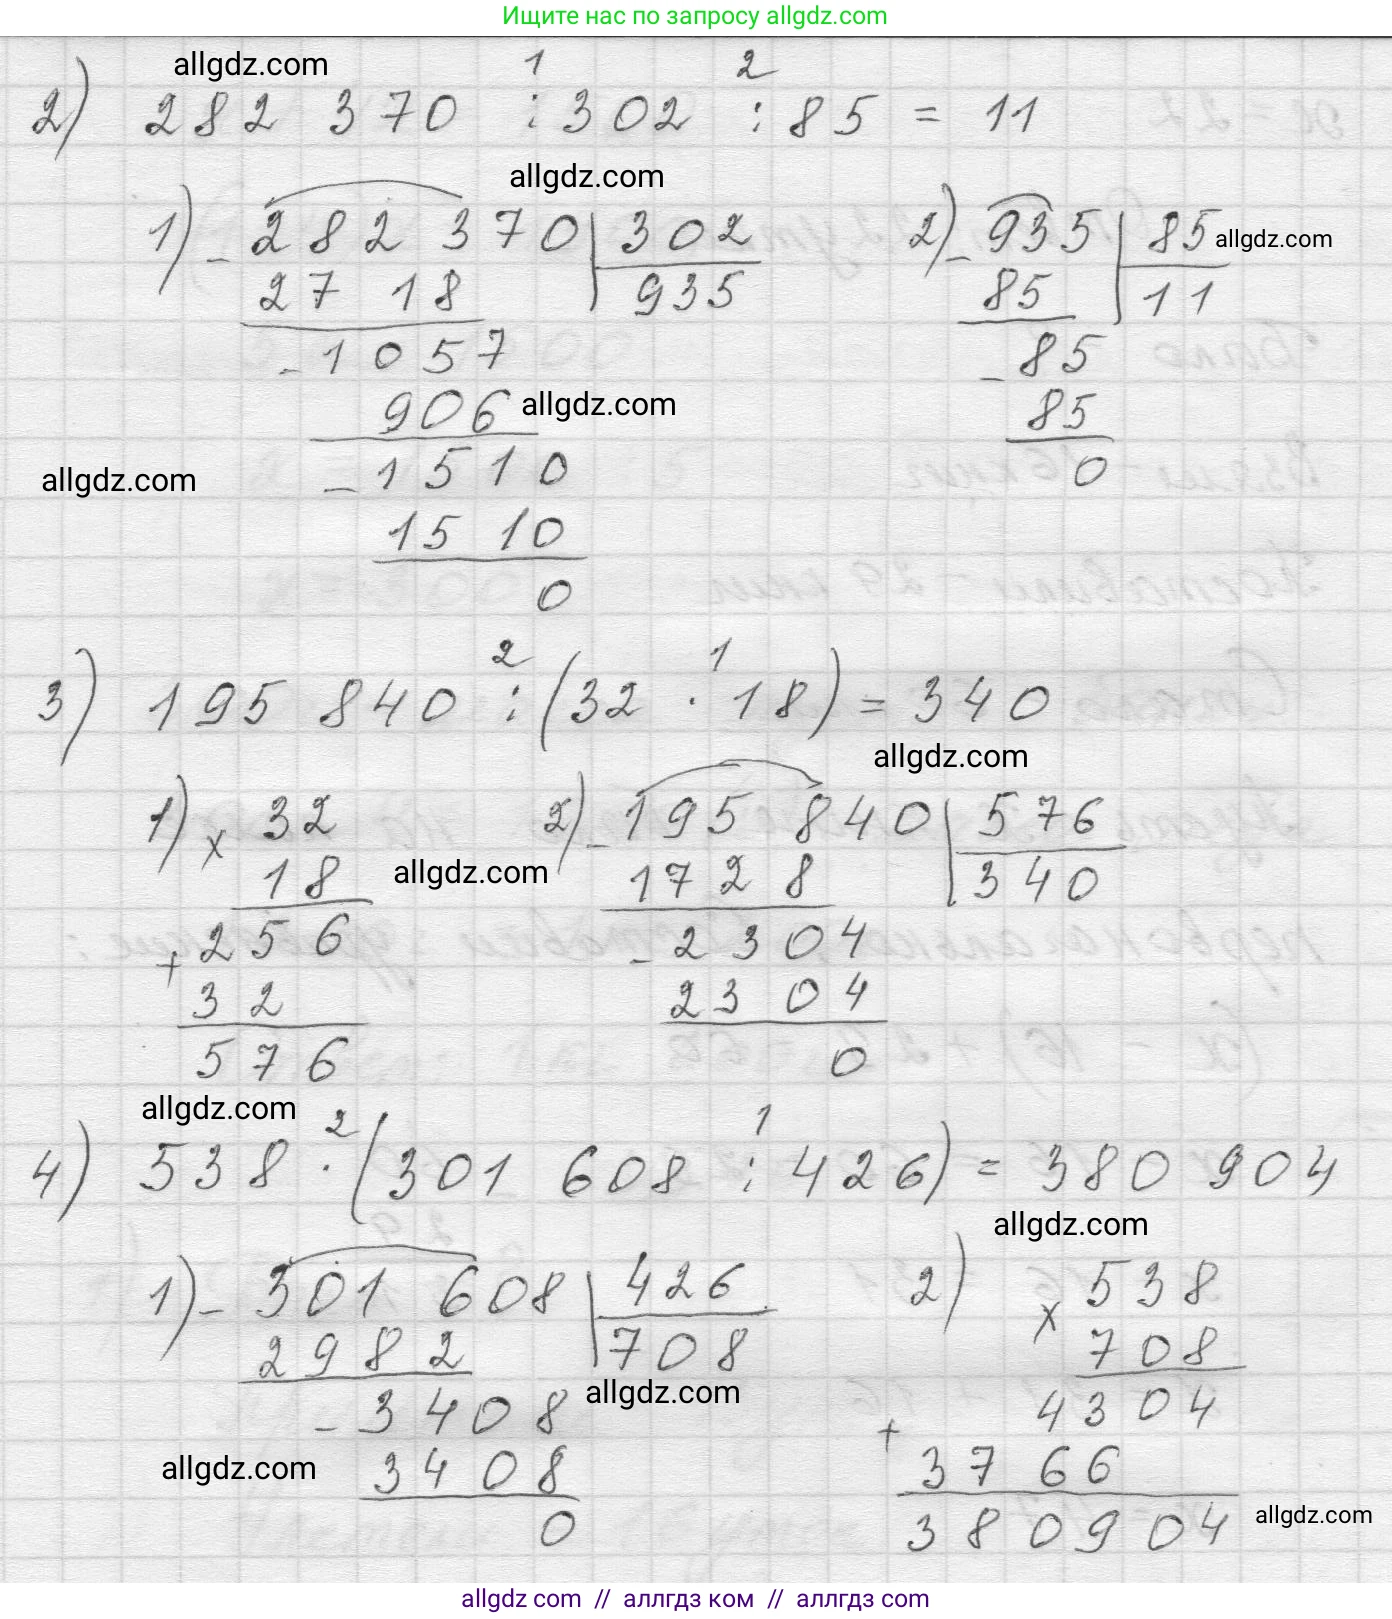 Ищите нас по запросу allgdz.com
allgdz.com
1 2
2) 282 370 : 302 : 85 = 11
allgdz.com
1) - 282 370 | 302 2) - 935 | 85 allgdz.com
27 18 935 85 11
- 1057 - 85
906 allgdz.com 85
allgdz.com - 1510 0
1510
0
2 1
3) 195 840 : (32 · 18) = 340
allgdz.com
1) x 32 2) - 195 840 | 576
18 allgdz.com 1728 340
+ 256 - 2304
32 2304
576 0
allgdz.com
2 1
4) 538 · (301 608 : 426) = 380 904
allgdz.com
1) - 301 608 | 426 2) x 538
2982 708 708
allgdz.com
- 3408 4304
allgdz.com 3408 + 3766
0 380904 allgdz.com
allgdz.com // аллгдз ком // аллгдз.com